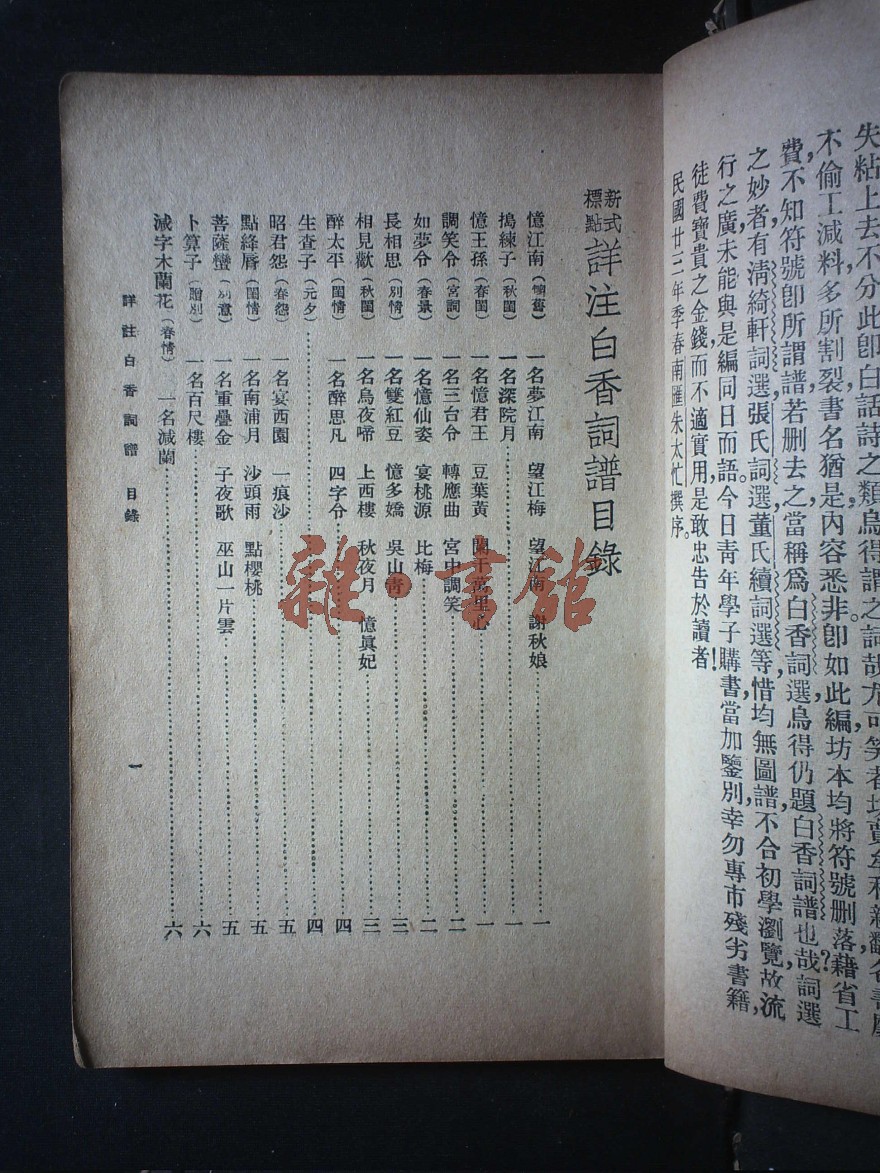 失粘上去不分此卽白話詩之類烏得謂之詞哉尤可笑者坊賈
不偷工減料多所割裂書名猶是內容悉非卽如此編坊本均將符號删落藉省工
費不知符號卽所謂譜若删去之當稱爲白香詞選烏得仍題白香詞譜也哉詞選
之妙者有淸綺軒詞選張氏詞選董氏續詞選等惜均無圖譜不合初學瀏覽故流
行之廣未能與是編同日而語今日靑年學子購書當加鑒別幸勿專市殘劣書籍
徒費寶貴之金錢而不適實用是敢忠告於讀者!
民國廿三年季春南匯朱太忙撰序。
新式標點詳注白香詞譜目錄
憶江南(懷舊)一名夢江南 望江梅 望江南 謝秋娘……一
搗練子(秋閨)一名深院月……一
憶王孫(春閨)一名憶君王 豆葉黃 闌干萬里心……一
調笑令(宮詞)一名三台令 轉應曲 宮中調笑……二
如夢令(春景)一名憶仙姿 宴桃源 比梅……二
長相思(別情)一名雙紅豆 憶多嬌 吳山靑……三
相見歡(秋閨)一名烏夜啼 上西樓 秋夜月 憶眞妃……三
醉太平(閨情)一名醉思凡 四字令……四
生查子(元夕)……四
昭君怨(春怨)一名宴西園 一痕沙……五
點絳脣(閨情)一名南浦月 沙頭雨 點櫻桃……五
菩薩蠻(別意)一名重疊金 子夜歌 巫山一片雲……五
卜算子(贈別)一名百尺樓……六
減字木蘭花(春情)一名減蘭……六
詳注白香詞譜 目錄
一
雜·書館